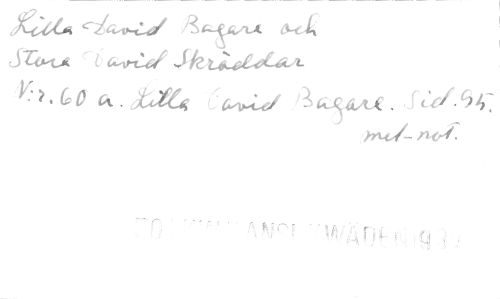 Lilla David Bagare och
Stora David Skräddar
N:r. 60 a. Lilla David Bagare. Sid. 95.
met-not.